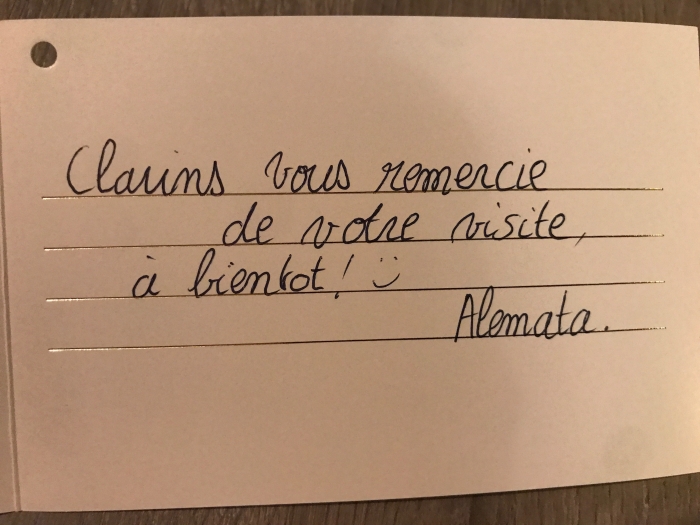 Clarins vous remercie
de votre visite,
à bientot! :)
Alemata.